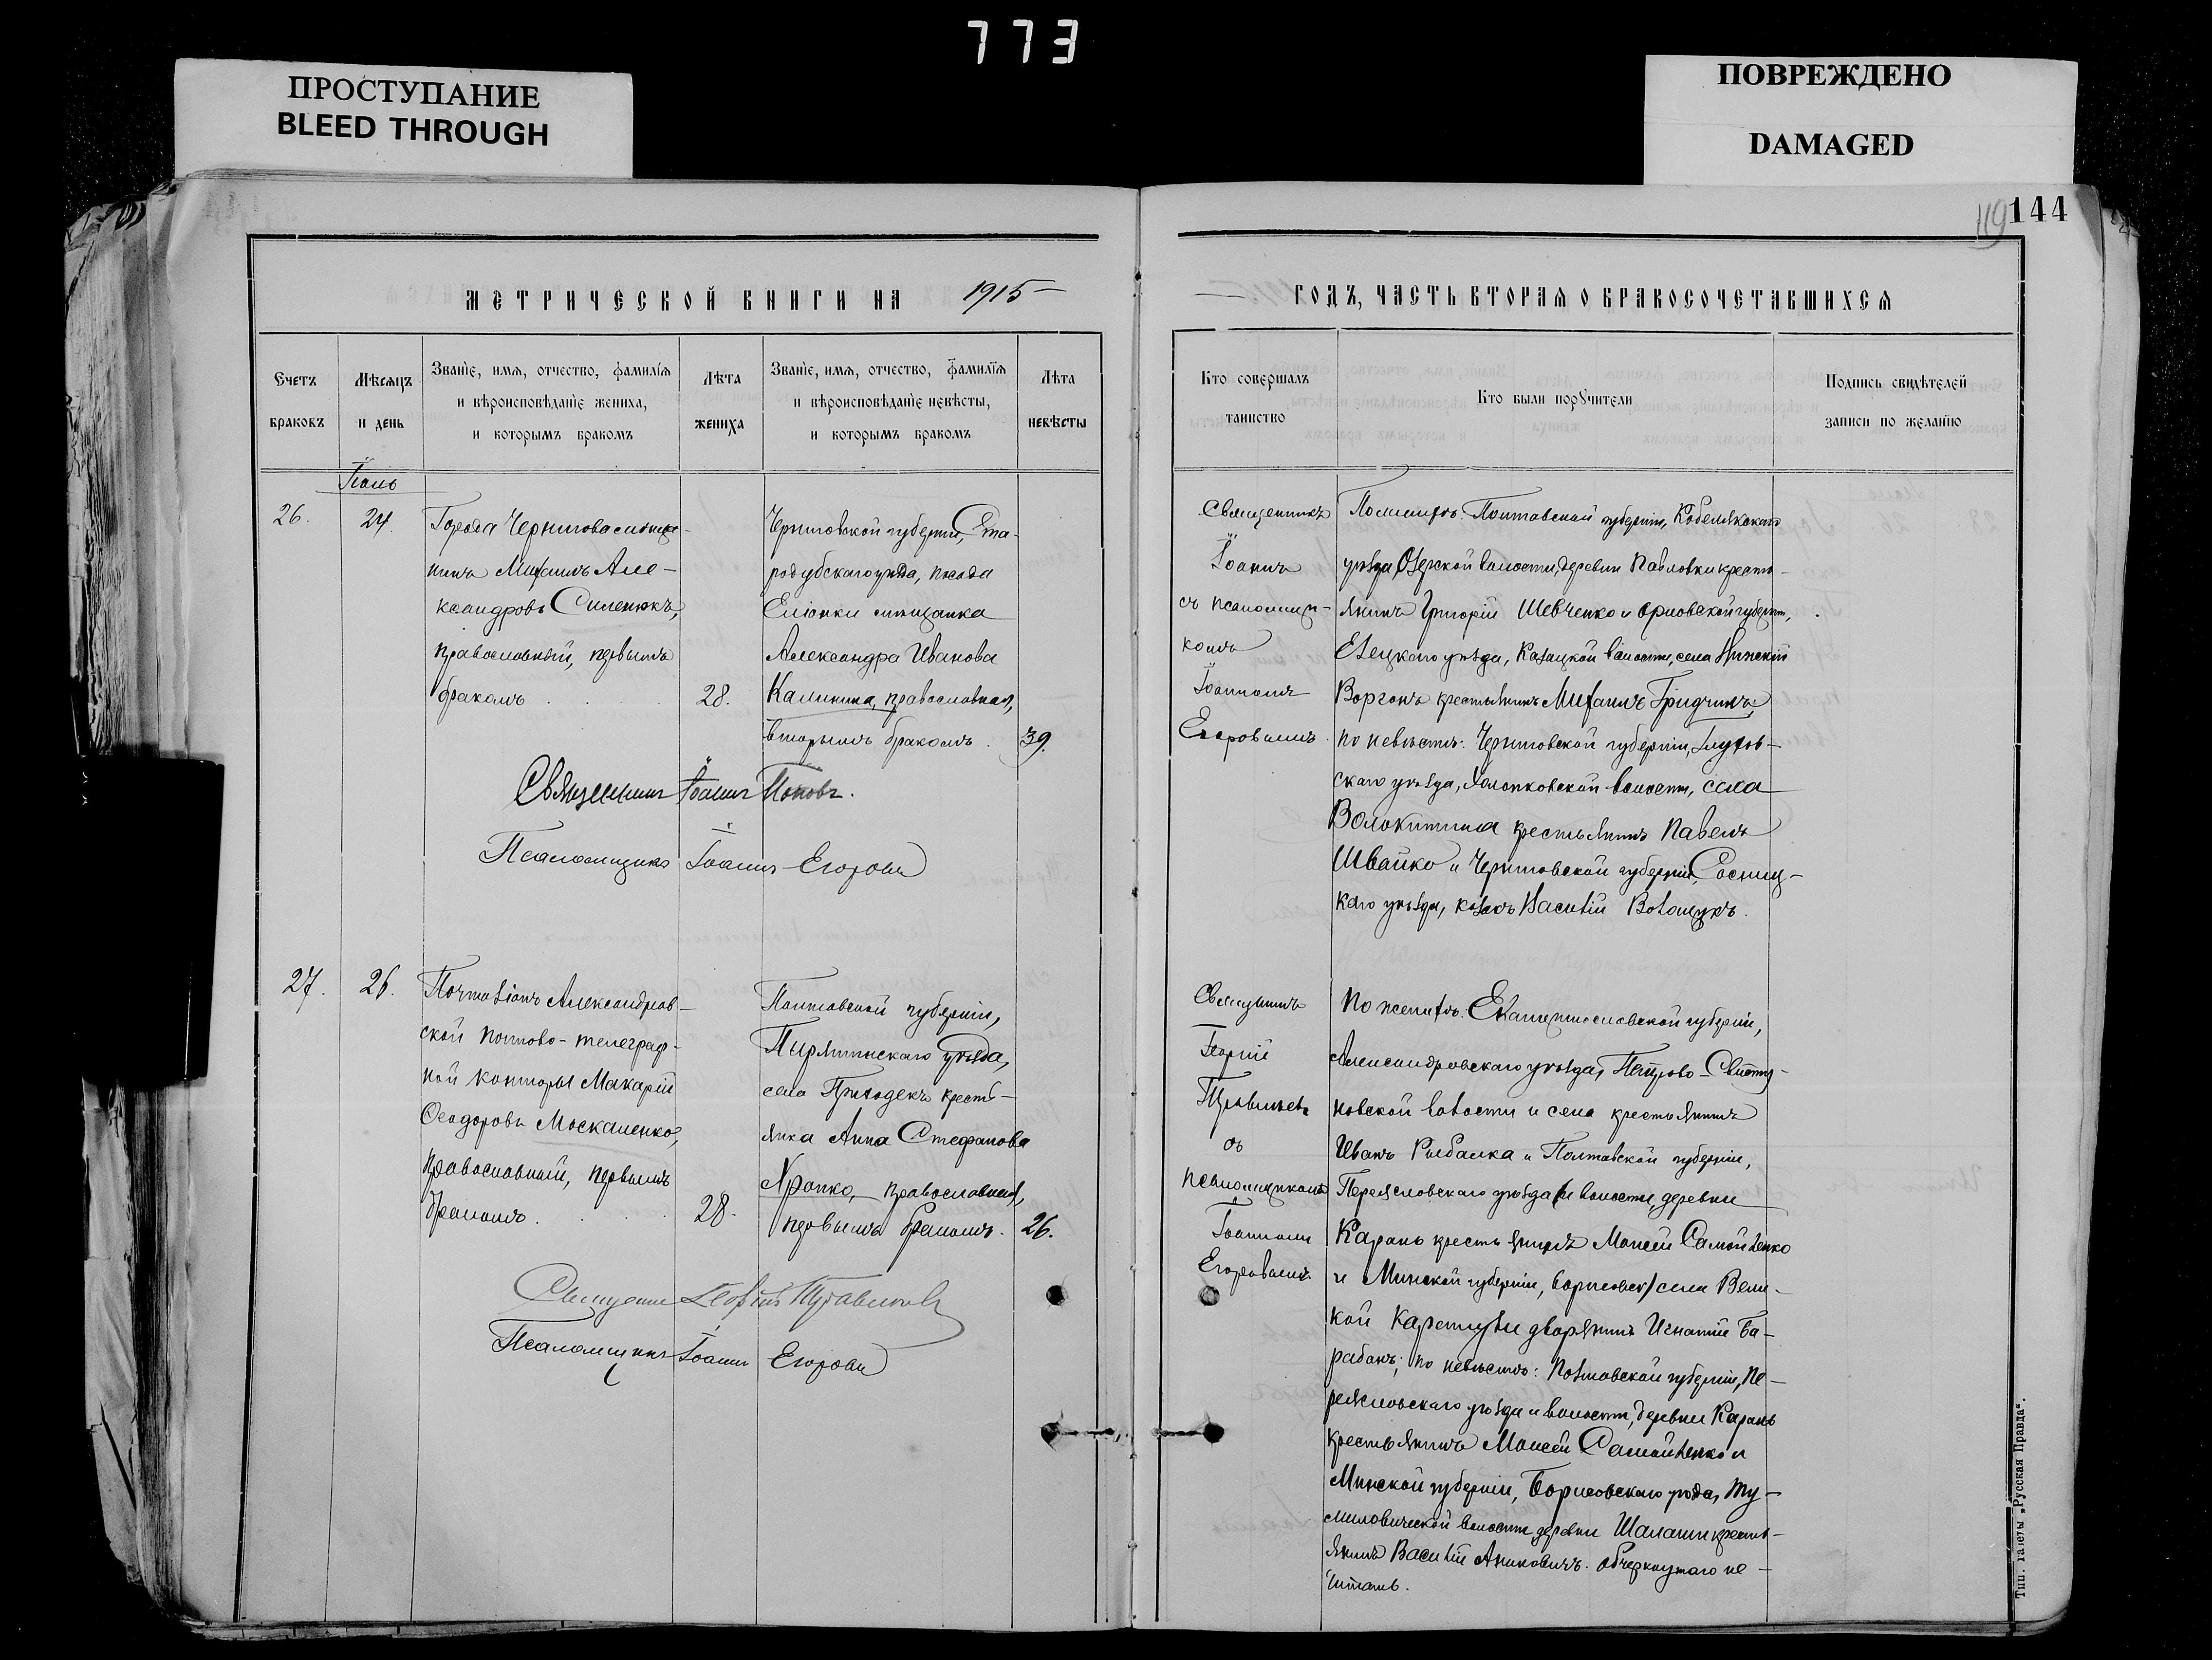 773
ПРОСТУПАНИЕ
BLEED THROUGH
ПОВРЕЖДЕНО
DAMAGED
119
144
МЕТРИЧЕСКОЙ КНИГИ НА 1915
Счетъ
браковъ
Мѣсяцъ
и день
Званіе, имя, отчество, фамилія
и вѣроисповѣданіе жениха,
и которымъ бракомъ
Лѣта
жениха
Званіе, имя, отчество, фамилія
и вѣроисповѣданіе невѣсты,
и которымъ бракомъ
Лѣта
невѣсты
26.
24.
Города Чернигова мѣща-
нинъ Михаилъ Але-
ксандровъ Силенокъ,
православный, первымъ
бракомъ
28.
Черниговской губерніи, Ста-
родубскаго уѣзда, посада
Еліонки мѣщанка
Александра Иванова
Калинина, православная,
вторымъ бракомъ.
39.
Священникъ Іоаннъ Поповъ.
Псаломщикъ Іоаннъ Егоровъ
27.
26.
Почталіонъ Александров-
ской почтово-телеграф-
ной конторы Макарій
Ѳеодоровъ Москаленко,
православный, первымъ
бракомъ.
28.
Полтавской губерніи,
Пирятинскаго уѣзда,
села Приходекъ кресть-
янка Анна Стефанова
Хропко, православная,
первымъ бракомъ.
26.
Священникъ Георгій
Псаломщикъ Іоаннъ Егоровъ
ГОДЪ, ЧАСТЬ ВТОРАЯ О БРАКОСОЧЕТАВШИХСЯ
Кто совершалъ
таинство
Кто были поручители
Подпись свидѣтелей
записи по желанію
Священникъ
Іоаннъ
съ псаломщи-
комъ
Іоанномъ
Егоровымъ.
По женихѣ: Полтавской губерніи, Кобелякскаго
уѣзда, Озерской волости, деревни Павловки кресть-
янинъ Григорій Шевченко и Орловской губерніи,
Елецкаго уѣзда, Казацкой волости, села Нижній
Воргонъ крестьянинъ Михаилъ Гридчинъ,
по невѣстѣ: Черниговской губерніи, Глухов-
скаго уѣзда, Холопковской волости, села
Волокитина крестьянинъ Павелъ
Швайко и Черниговской губерніи, Сосниц-
каго уѣзда, козакъ Василій
Священникъ
Георгій
съ
псаломщикомъ
Іоанномъ
Егоровымъ
По женихѣ: Екатеринославской губерніи,
Александровскаго уѣзда, Петрово-Свисту-
новской волости и села крестьянинъ
Иванъ Рыбалка и Полтавской губерніи,
Переясловскаго уѣзда и волости, деревни
Карань крестьянинъ Моисей Самойленко
и Минской губерніи, Борисовск/ села Вели-
кой дворянинъ Игнатій Ба-
рабанъ; по невѣстѣ: Полтавской губерніи, Пе-
реясловскаго уѣзда и волости, деревни Карань
крестьянинъ Моисей Самойленко и
Минской губерніи, Борисовскаго уѣзда,
волости деревни Шалаши кресть-
янинъ Василій Аниковичъ. Обчеркнутаго не
читать.
Тип. газеты „Русская Правда“.